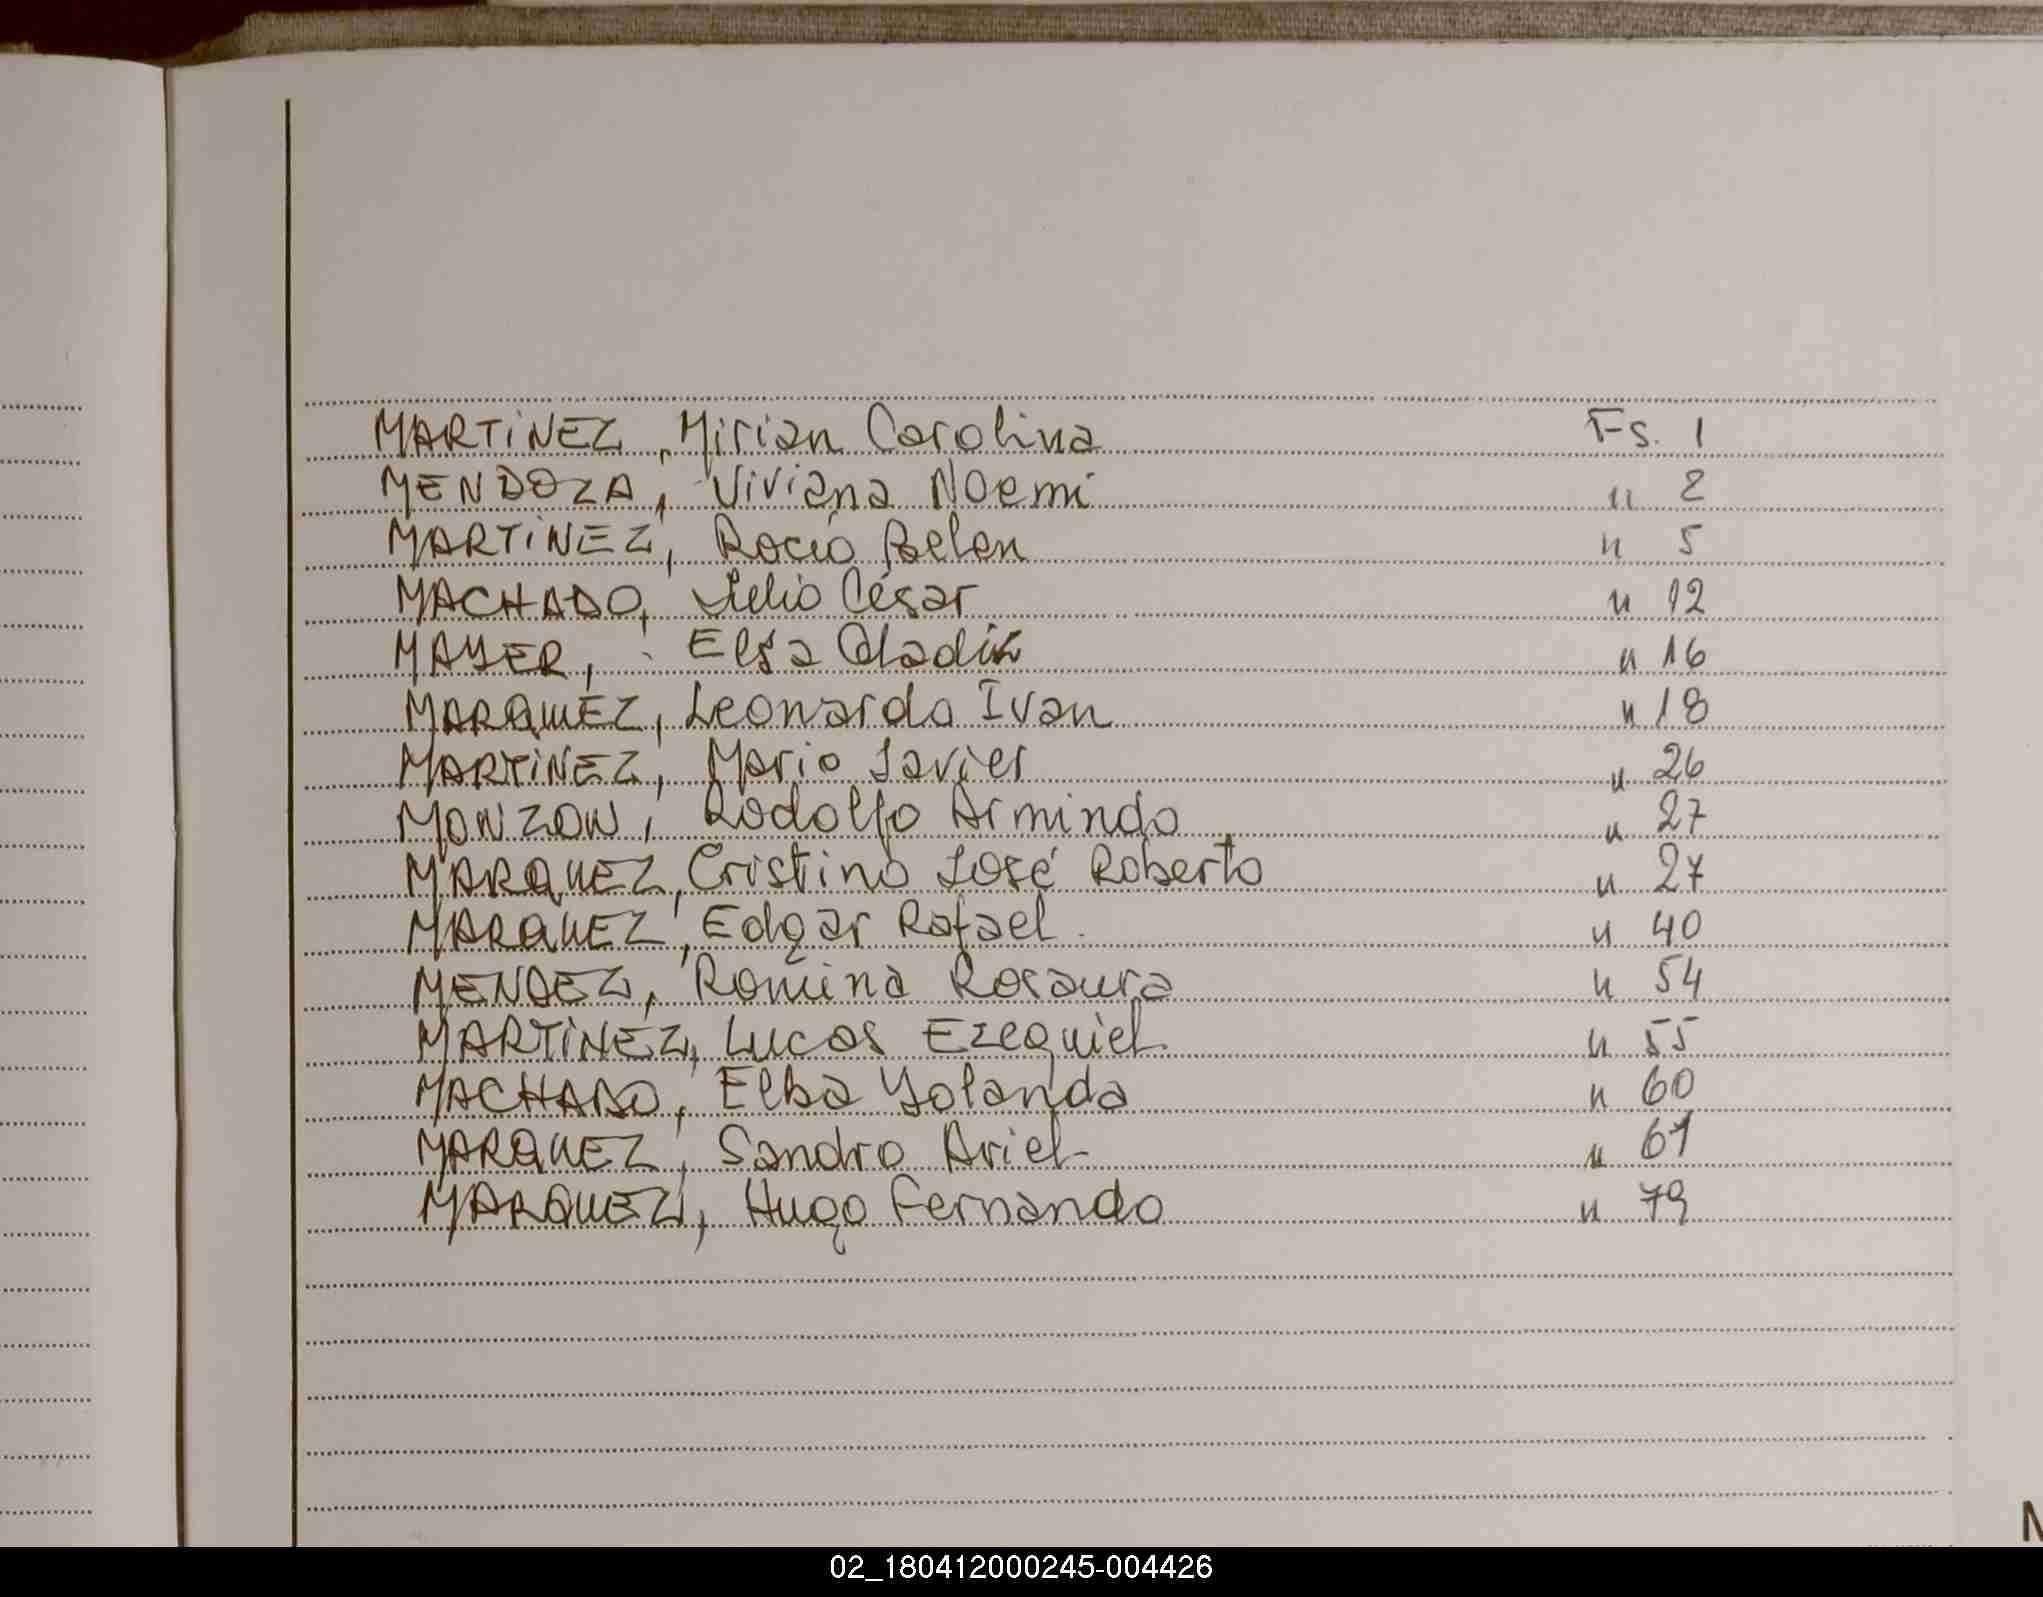 MARTiNEZ, Mirian Carolina Fs. 1
MENDOZA, Viviana Noemi " 2
MARTiNEZ, Rocío Belen " 5
MACHADO, Julio César " 12
MAYER, Elsa Gladis " 16
MARQUEZ, Leonardo Ivan " 18
MARTiNEZ, Mario Javier " 26
MONZON, Rodolfo Armindo " 27
MARQUEZ, Cristino José Roberto " 27
MARQUEZ, Edgar Rafael. " 40
MENDEZ, Romina Rosaura " 54
MARTiNEZ, Lucas Ezequiel " 55
MACHADO, Elba Yolanda " 60
MARQUEZ, Sandro Ariel " 61
MARQUEZ, Hugo Fernando " 79
02_180412000245-004426